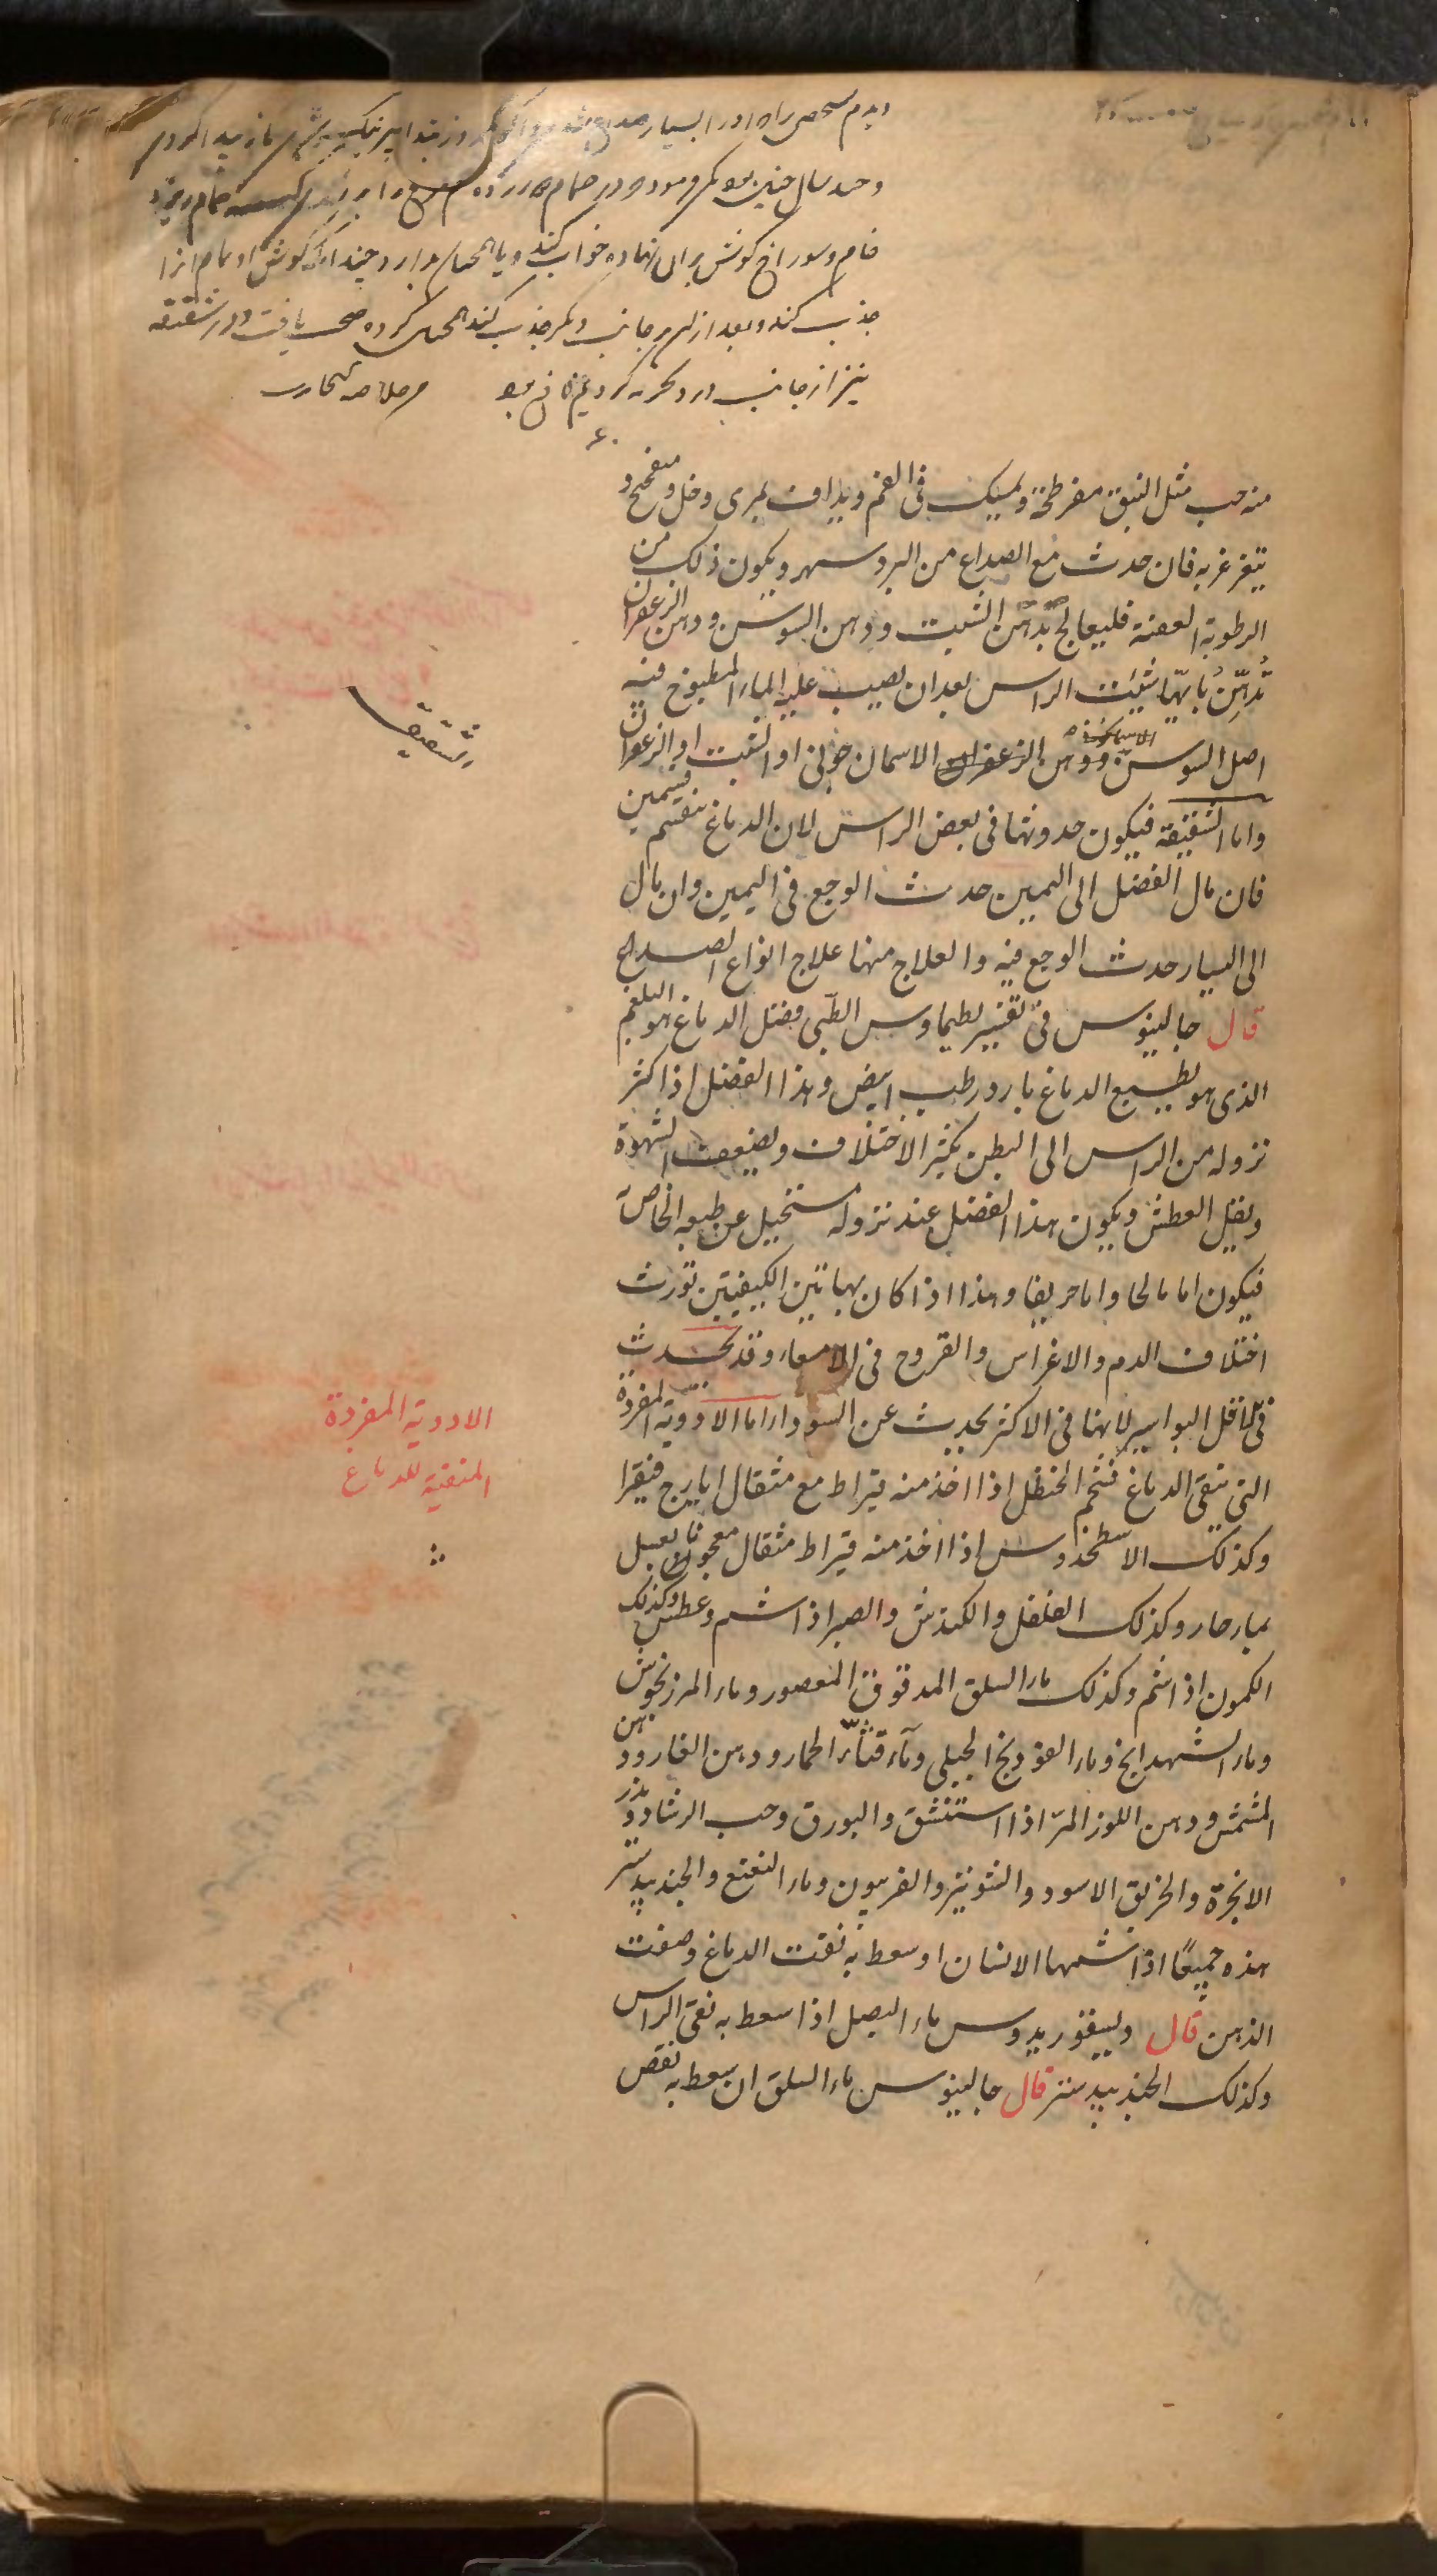 وسوراخ کوش بران نهاده خواب کند
جذب کند و بعد ازان بر جانب دیکر جذب کند کرده صحت یافت و در شقیقه
نیز از جانب درد تجربه کردیم نافع بود
منه حب مثل النبق مفرطحة ویمسک فی الفم ویداف بمری وخل ومیفختج و
یتغرغر به فان حدث مع الصداع من البرد سهر ویکون ذلک من
الرطوبة العفنة فلیعالج بدهن الشبت ودهن السوسن ودهن الزعفران
تُدهِّنُ بایهما شئت الراس بعد ان یصیب علیه الماء المطبوخ فیه
اصل السوسن ودهن الاسمان جونی او الشبت او الزعفران
الشقیقة
واما الشقیقة فیکون حدوثها فی بعض الراس لان الدماغ ینقسم قسمین
فان مال الفضل الی الیمین حدث الوجع فی الیمین وان مال
الی الیسار حدث الوجع فیه والعلاج منها علاج انواع الصداع
قال جالینوس فی تفسیر لطیماوس الطبی فضل الدماغ هو البلغم
الذی هو بطبع الدماغ بارد رطب ابیض وهذا الفضل اذا کثر
نزوله من الراس الی البطن یکثر الاختلاف ویضعف الشهوة
ویقل العطش ویکون هذا الفضل عند نزوله مستحیل عن طبعه الخاص
فیکون اما مالحا واما حریفا وهذا اذا کان بهاتین الکیفیتین تورث
اختلاف الدم والاغراس والقروح فی الامعاء وقد یحدث
فی الاقل البواسیر لانها فی الاکثر یحدث عن السوداء اما الادویة المفردة
الادویة المفردة
المنقیة للدماغ
التی ینقی الدماغ فشحم الحنظل اذا اخذ منه قیراط مع مثقال ایارج فیقرا
وکذلک الاسطخدوس اذا اخذ منه قیراط مثقال معجونا بعسل
بماء حار وکذلک الفلفل والکندش والصبر اذا شم وعطس وکذلک
الکمون اذا شم وکذلک ماء السلق المدقوق المعصور وماء المرزنجوش
وماء الشهدانج وماء الفودنج الجبلی وماء قثاء الحمار ودهن الغار ودهن
المشمش ودهن اللوز المر اذا استنشق والبورق وحب الرشاد وبذر
الانجرة والخربق الاسود والشونیز والفربیون وماء النعنع والجندبیدستر
هذه جمیعًا اذا شمها الانسان او سعط به نقت الدماغ وصفت
الذهن قال دیسقوریدوس ماء البصل اذا سعط به نقی الراس
وکذلک الجندبیدستر قال جالینوس ماء السلق ان سعط به نقص